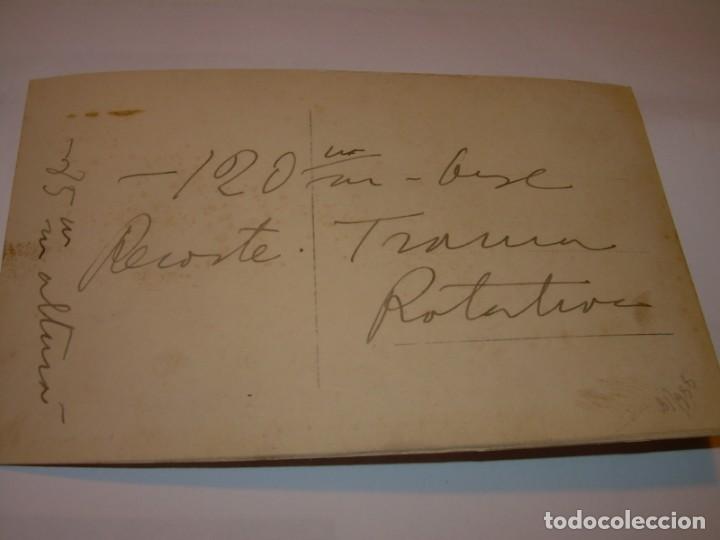 -120 m/m - base
Recorte. Trama
Rotativa
-75 m/m altura-
todocoleccion.net